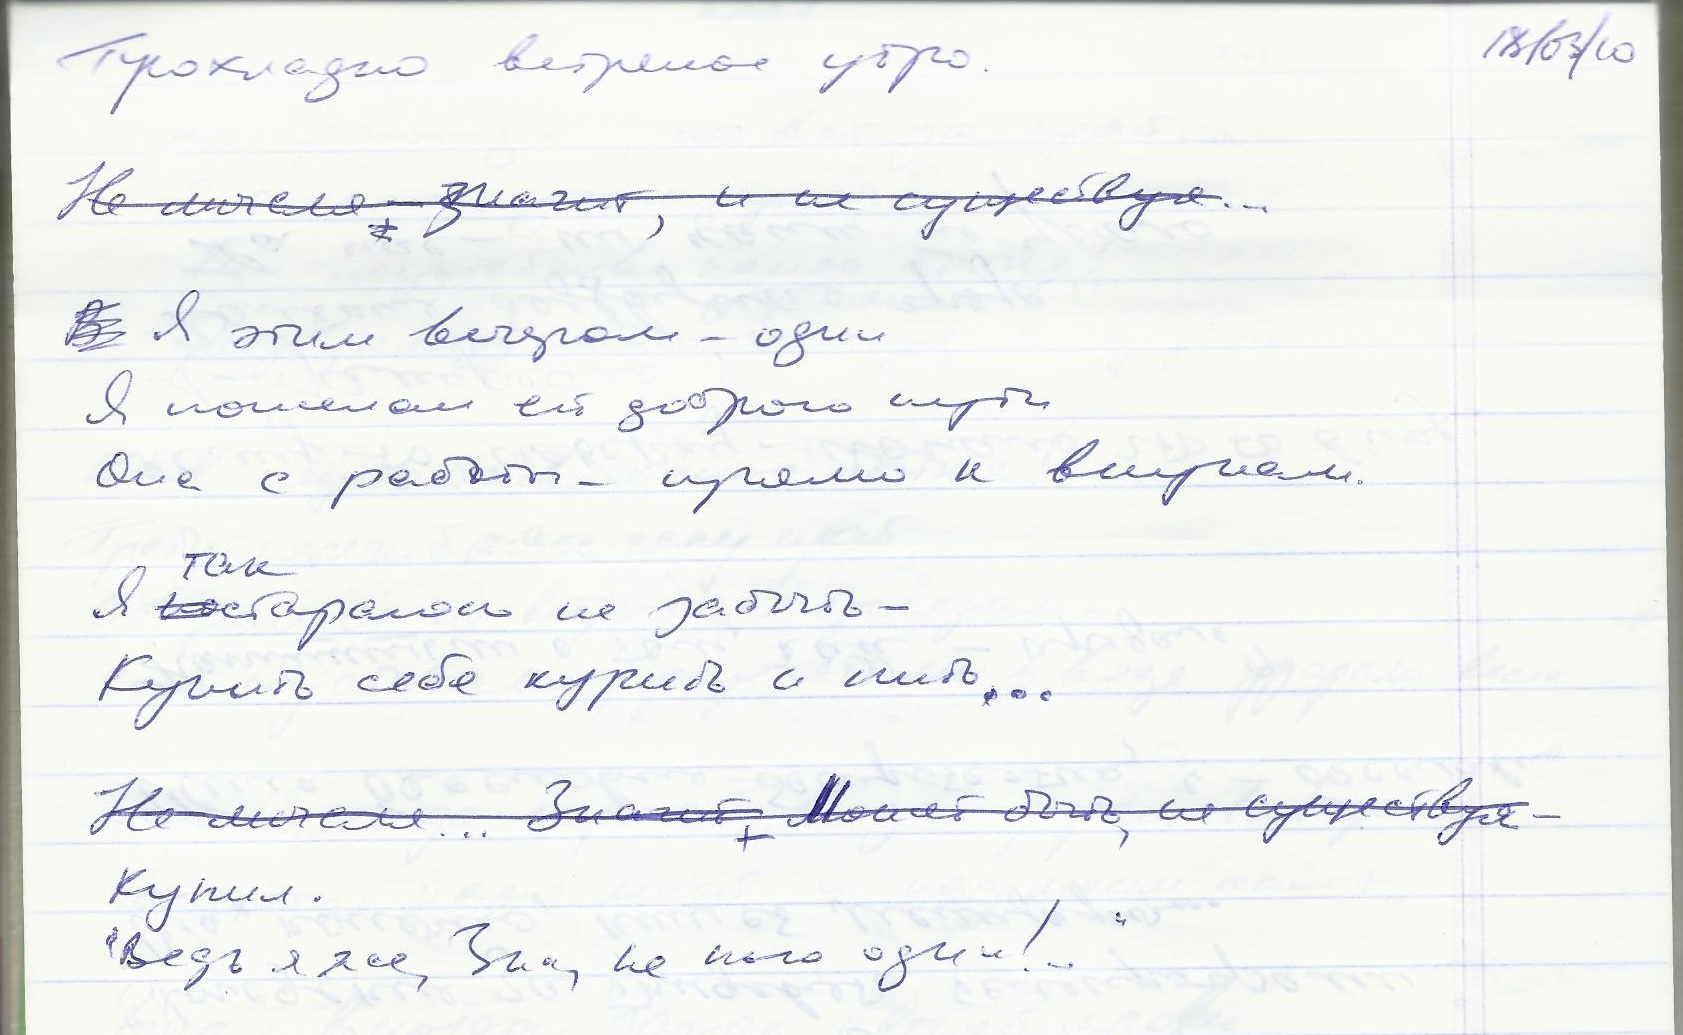 Прохладно ветреное утро. 18/03/10
Не мычали - Значит, и не существуя...
Я этим вечером – один
Я пожелал ей доброго пути
Она с работы – прямо к внукам.
так
Я старалось не забыть –
Купить себе курить и пить...
Не мычали... Значит, Может быть, не существуя –
Купил.
"Ведь я же, Зин, не пью один!.."